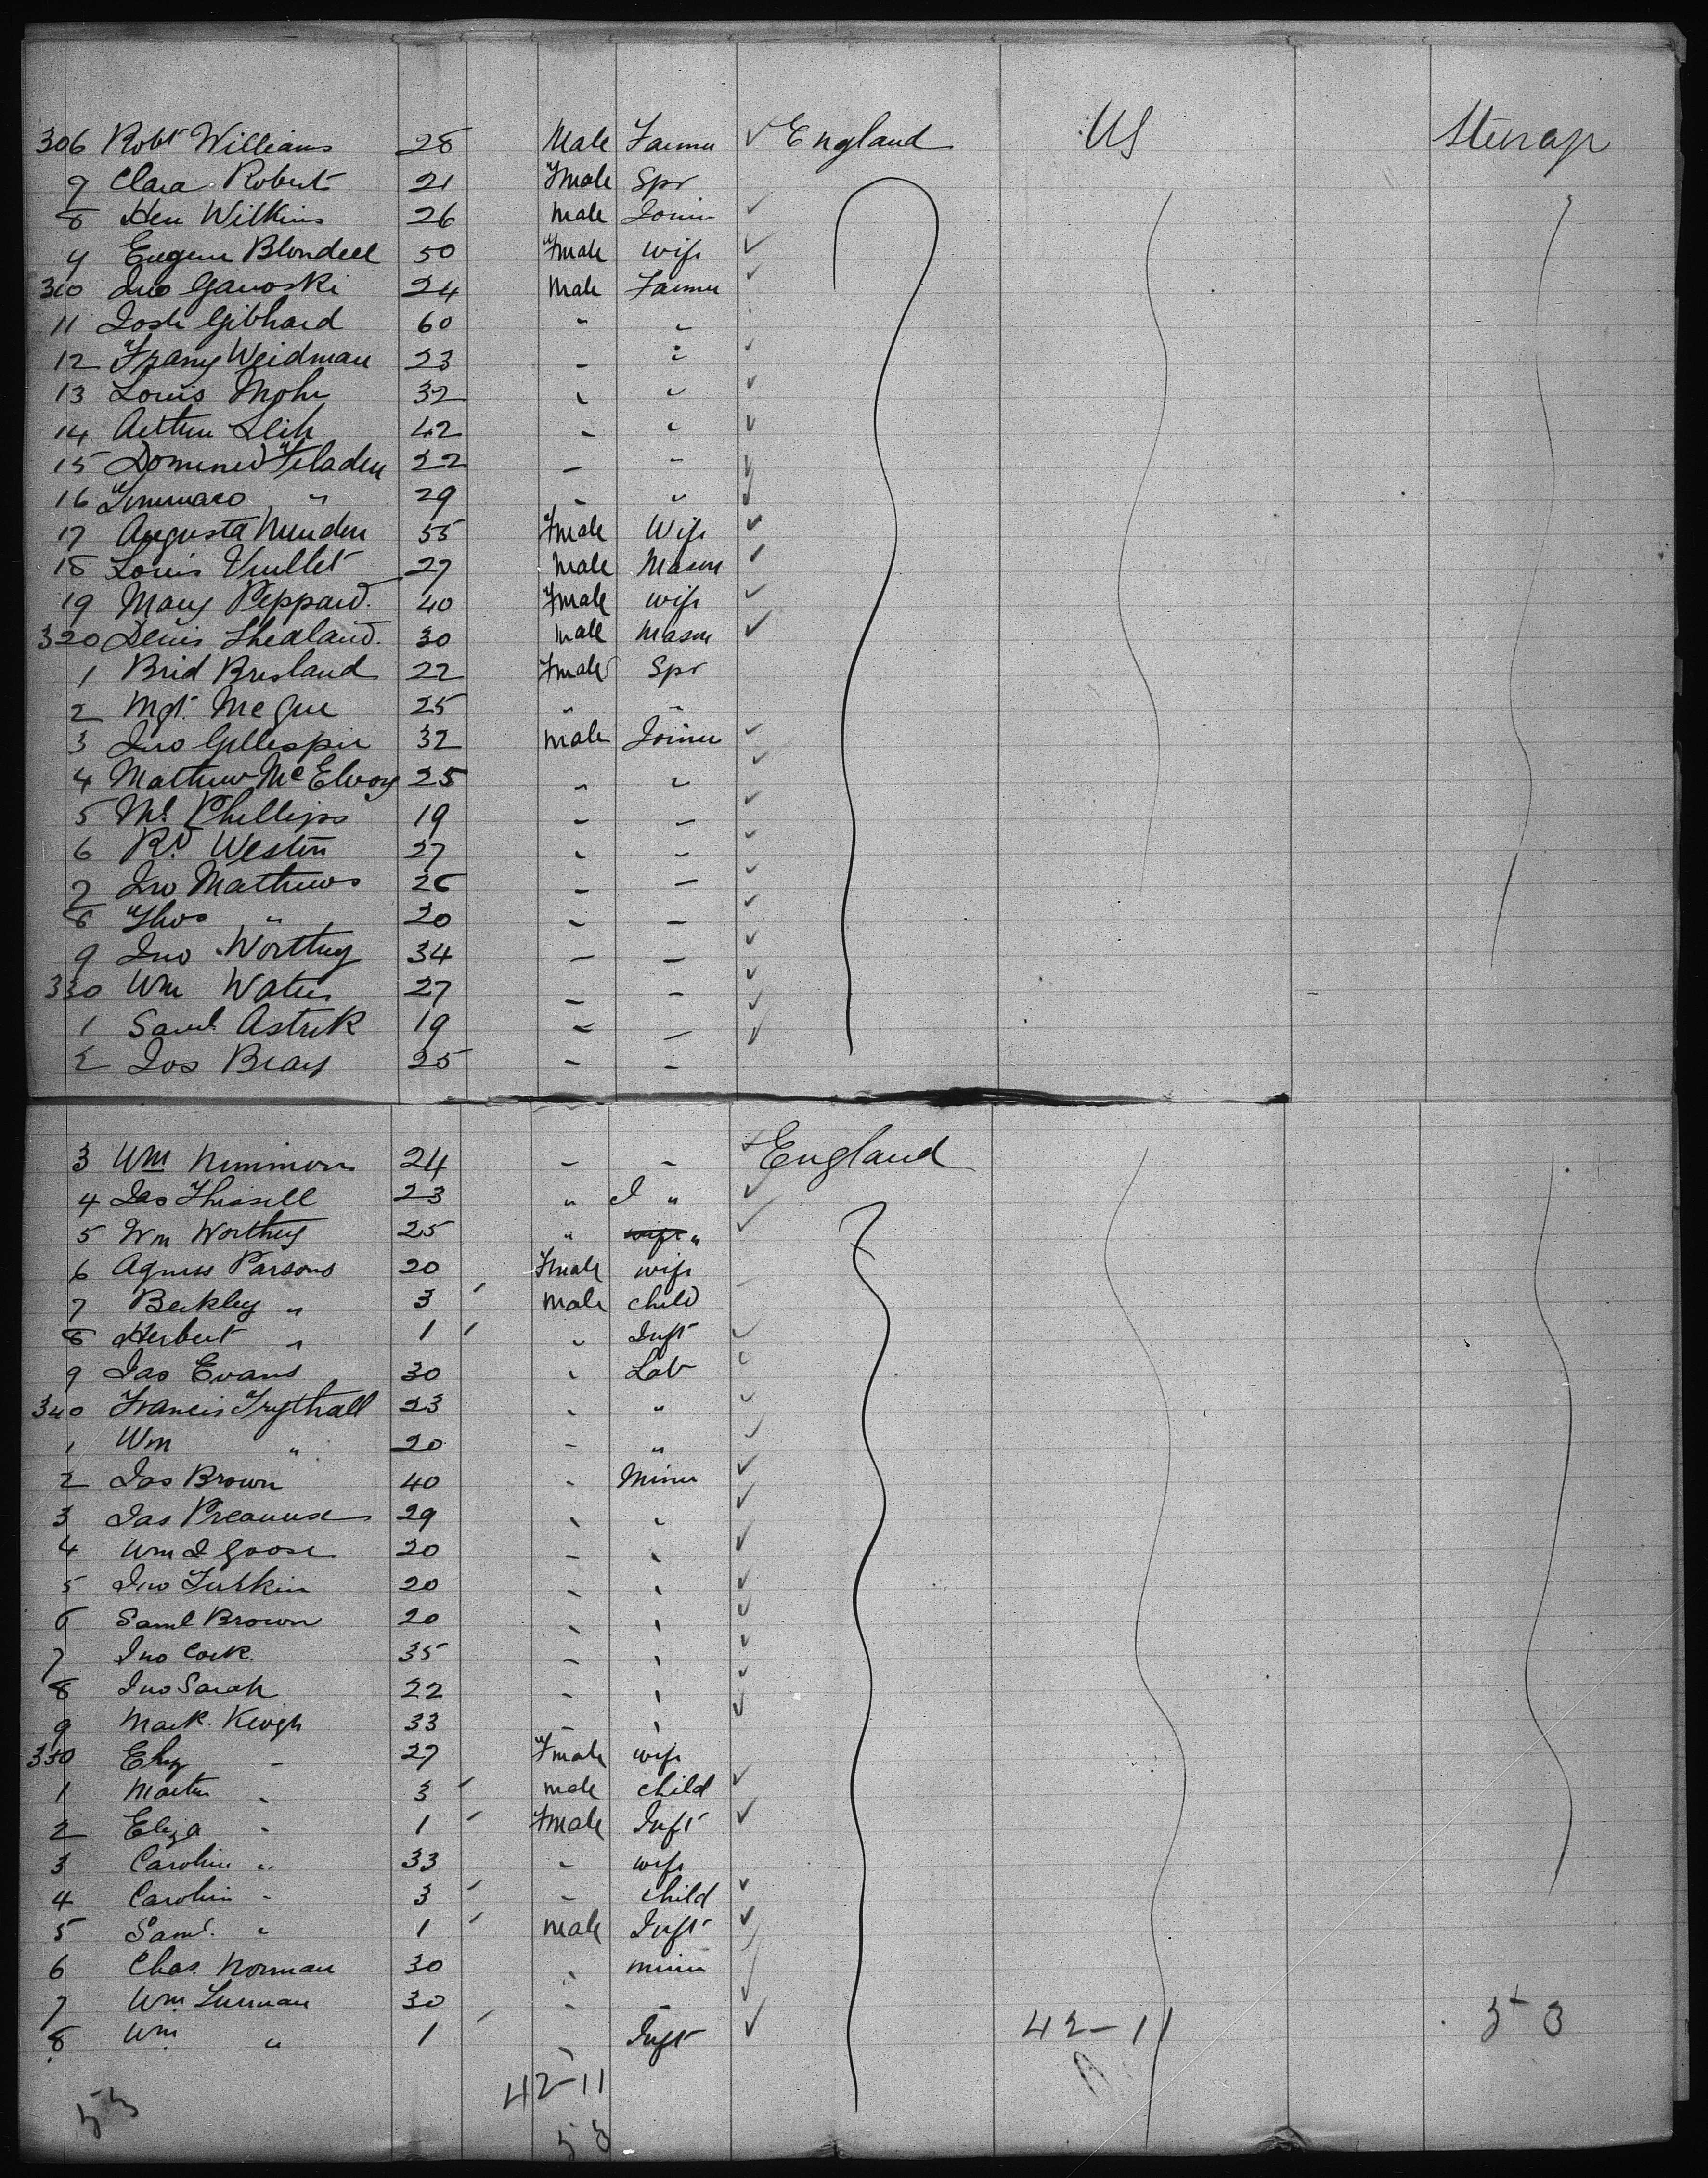 306 Robt Williams 28 Male Farmer ✓ England US Steerage
7 Clara Roberts 21 Fmale Spr
8 Hen Wilkins 26 Male Joiner ✓
9 Eugene Blondeel 50 Fmale Wife ✓
310 Jno Ganoski 24 Male Farmer ✓
11 Josh Gibhard 60 " "
12 Franz Weidman 23 " " ✓
13 Louis Mohr 32 " " ✓
14 Arthur Leih 42 " " ✓
15 22 " " ✓
16 " 29 " " ✓
17 Augusta 55 Fmale Wife ✓
18 Louis Vuillet 27 Male Mason ✓
19 Mary Peppard 40 Fmale Wife ✓
320 Denis Shealand 30 Male Mason ✓
1 Brid Bresland 22 Fmale Spr
2 Mgt. McGue 25 " "
3 Jno Gillespie 32 male Joiner ✓
4 Mathew McElvoy 25 " " ✓
5 Ml Phillips 19 " " ✓
6 Rd Weston 27 " " ✓
7 Jno Mathews 26 " " ✓
8 Thos " 20 " " ✓
9 Jno Worthy 34 " " ✓
330 Wm Waters 27 " " ✓
1 Saml Astrik 19 " " ✓
2 Jos Bray 25 " " ✓
3 Wm Nimmon 24 " " ✓ England
4 Jas Thissell 23 " J " ✓
5 Wm Worthy 25 " wife " ✓
6 Agness Parsons 20 Fmale wife
7 Berkley " 3 male child
8 Herbert " 1 " Inft ✓
9 Jas Evans 30 " Lab ✓
340 Francis Trythall 23 " " ✓
1 Wm " 20 " " ✓
2 Jas Brown 40 " Miner ✓
3 Jas 29 " " ✓
4 Wm J Goose 20 " " ✓
5 Jno 20 " " ✓
6 Saml Brown 20 " " ✓
7 Jno Cock 35 " " ✓
8 Jno Sarah 22 " " ✓
9 Mark Keogh 33 " " ✓
350 Eliz " 27 Fmale wife
1 Martin " 3 male child ✓
2 Eliza " 1 Fmale Inft ✓
3 Carolin " 33 " wife
4 Carolin " 3 " child ✓
5 Saml. " 1 male Inft ✓
6 Chas. Norman 30 " miner ✓
7 Wm Lurman 30 " " ✓
8 Wm " 1 " Inft ✓ 42-11 53
53 42-11
53